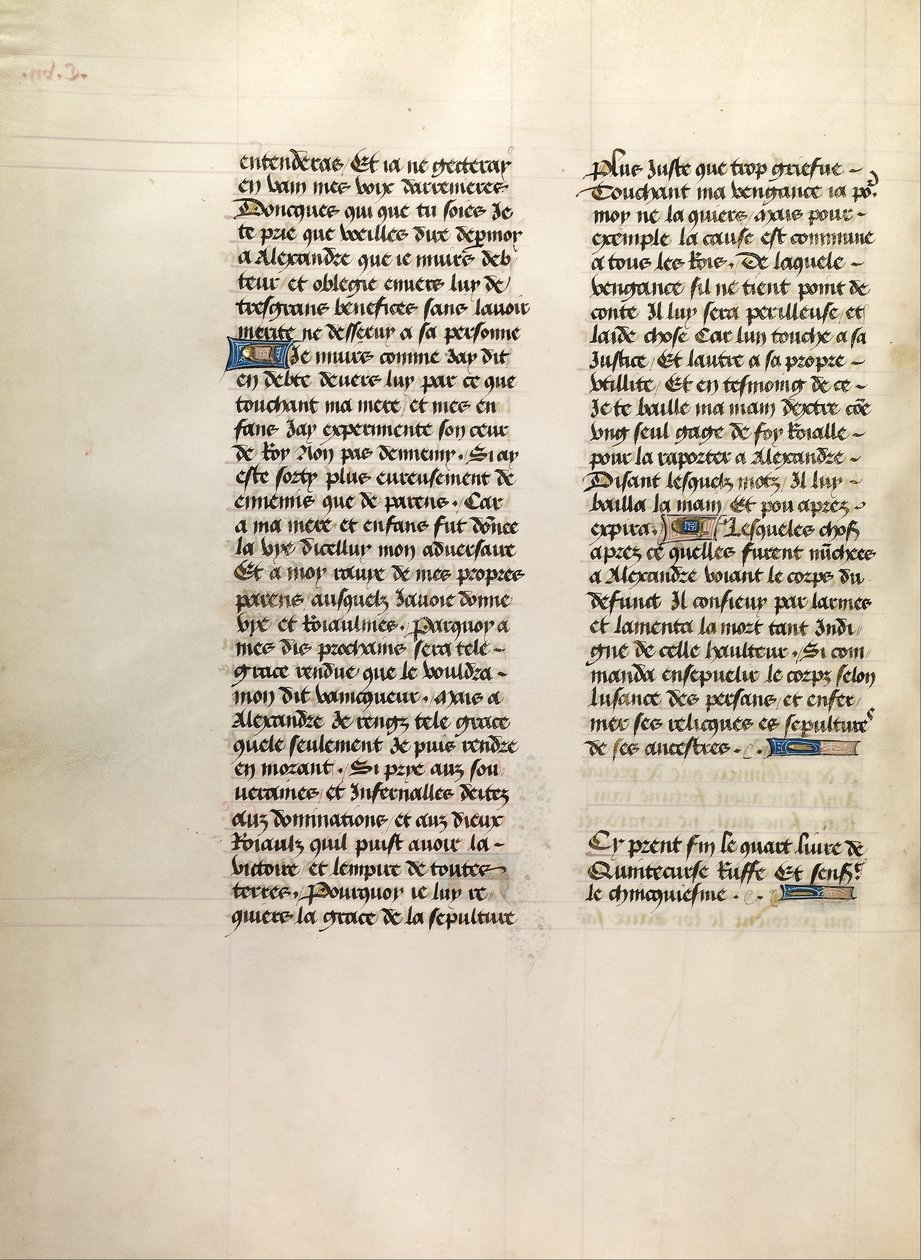 entenderas / Et ia ne gecteray
en vain mes voix darrenieres
Doncques qui que tu soies Je
te prie que vueilles dire de p moy
a Alexandre que ie muirs deb
teur / et oblegie enuers luy de /
tresgrans benefices sans lauoir
merite ne desseruy a sa personne
Je muirs comme Jay dit
en debte deuers luy par ce que
touchant ma mere / et mes en
fans Jay experimente son ceur
de Roy Non pas dennemy . Si ay
este sorty plus eureusement de
ennemis que de parens . Car
a ma mere et enfans fut dōnee
la vye dicelluy mon aduersaire
Et a moy rauye de mes propres
parens ausquelz Jauoie donne
vye et Roiaulmes . Parquoy a
mes dis prochains sera tele -
grace rendue que le vouldra -
mon dit vaincqueur . Mais a
Alexandre Je rengz tele grace
quele seulement Je puis rendre
en morant . Si prye aux sou
ueraines et Infernalles deitez
aux dominations et aux dieux
Roiaulx quil puist auoir la -
victoire et lempire de toutes
terres . Pourquoy ie luy re
quiers la grace de la sepulture
Plus Juste que trop griefue -
Touchant ma vengance ia po᷑.
moy ne la quiers Mais pour -
exemple la cause est commune
a tous les Rois . De laquele -
vengance sil ne tient point de
conte Il luy sera perilleuse / et
laide chose Car lun touche a sa
Justice / Et lautre a sa propre -
vtillite / Et en tesmoing de ce -
Je te baille ma main dextre cōe
vng seul gage de foy Roialle -
pour la raporter a Alexandre -
Disant lesquelz motz / Il luy -
bailla la main / Et pou aprez -
expira . Lesqueles choſ
aprez ce quelles furent nūchees
a Alexandre voiant le corps du
defunct Il consieuy par larmes
et lamenta la mort tant Indi /
gne de celle haulteur . Si com
manda ensepuelir le corps selon
lusance des persans / et enfer /
mer ses relicques es sepultures
de ses ancestres .
Cy prent fin le quart liure de
Quintecurse Ruffe Et sensᵗ.
le chincquiesme .